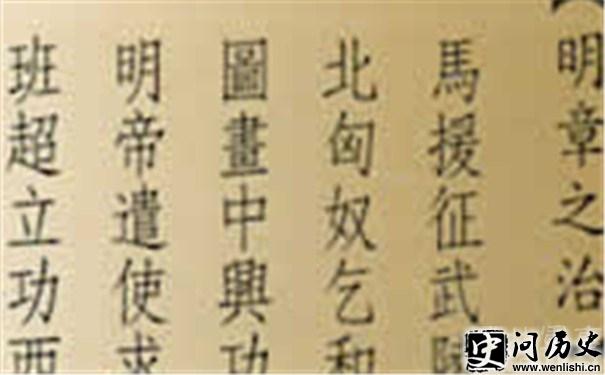 明章之治
馬援征武陵
北匈奴乞和
圖畫中興功
明帝遣使求
班超立功西
史问历史
www.wenlishi.cn